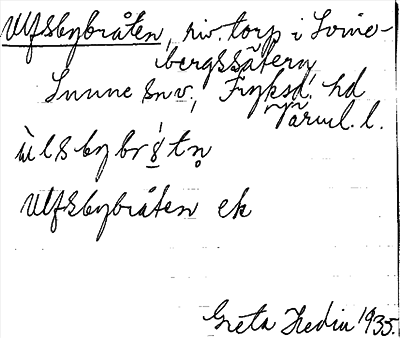 Ulfsbybråten, riv. torp i Svine-
bergssätern,
Sunne snv., Fryksd. hd
Värml. l.
ùlsbybrǻtn̥
Ulfsbybråten ek
Greta Hedin 1935.